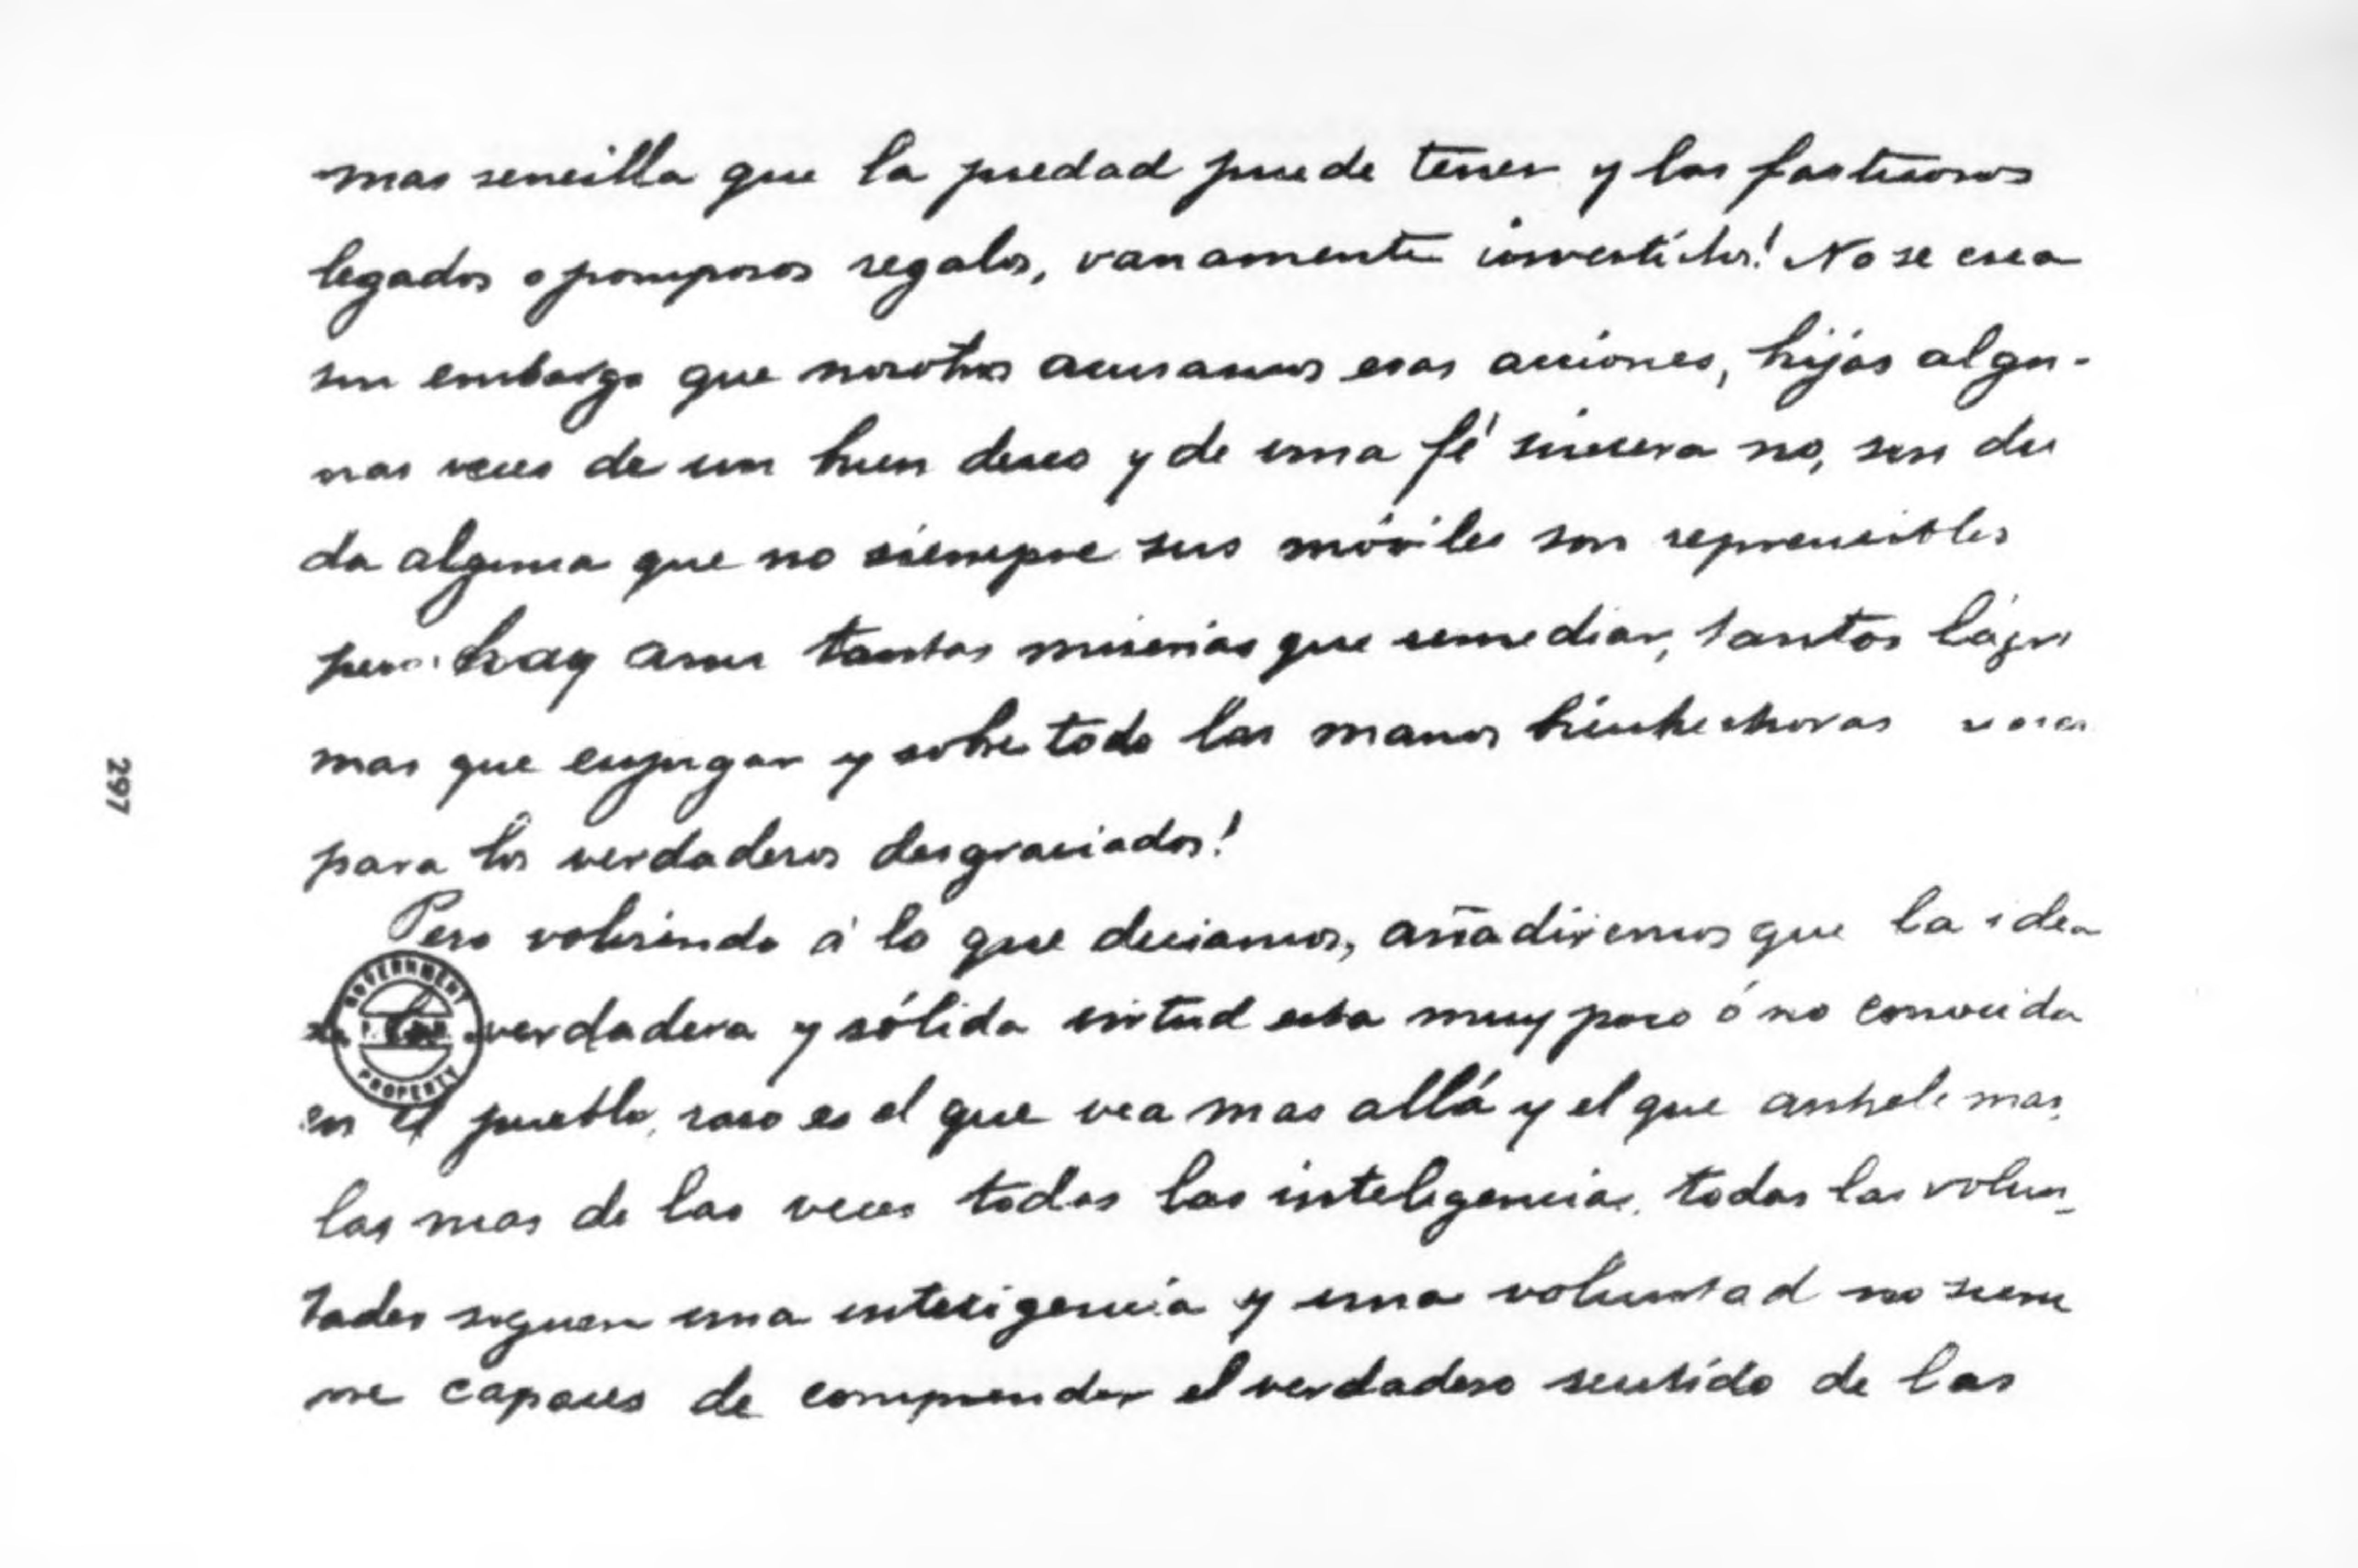 mas sencilla que la piedad puede tener y los fastuosos
legados o pomposos regalos, vanamente invertidos! No se crea
sin embargo que nosotros acusamos esas acciones, hijas algu-
nas veces de un buen deseo y de una fé sincera no, sin du
da alguna que no siempre sus móviles son reprensibles
pero hay aun tantas miserias que remediar, tantas lágri
mas que enjugar y sobre todo las manos bienhechoras
para los verdaderos desgraciados!
Pero volviendo á lo que deciamos, añadiremos que la idea
de la verdadera y sólida virtud esta muy poco ó no conocida
en el pueblo, raro es el que vea mas allá y el que anhele mas,
las mas de las veces todas las inteligencias, todas las volun_
tades siguen una inteligencia y una voluntad no siem
pre capaces de comprender el verdadero sentido de las
GOVERNMENT
PROPERTY
297